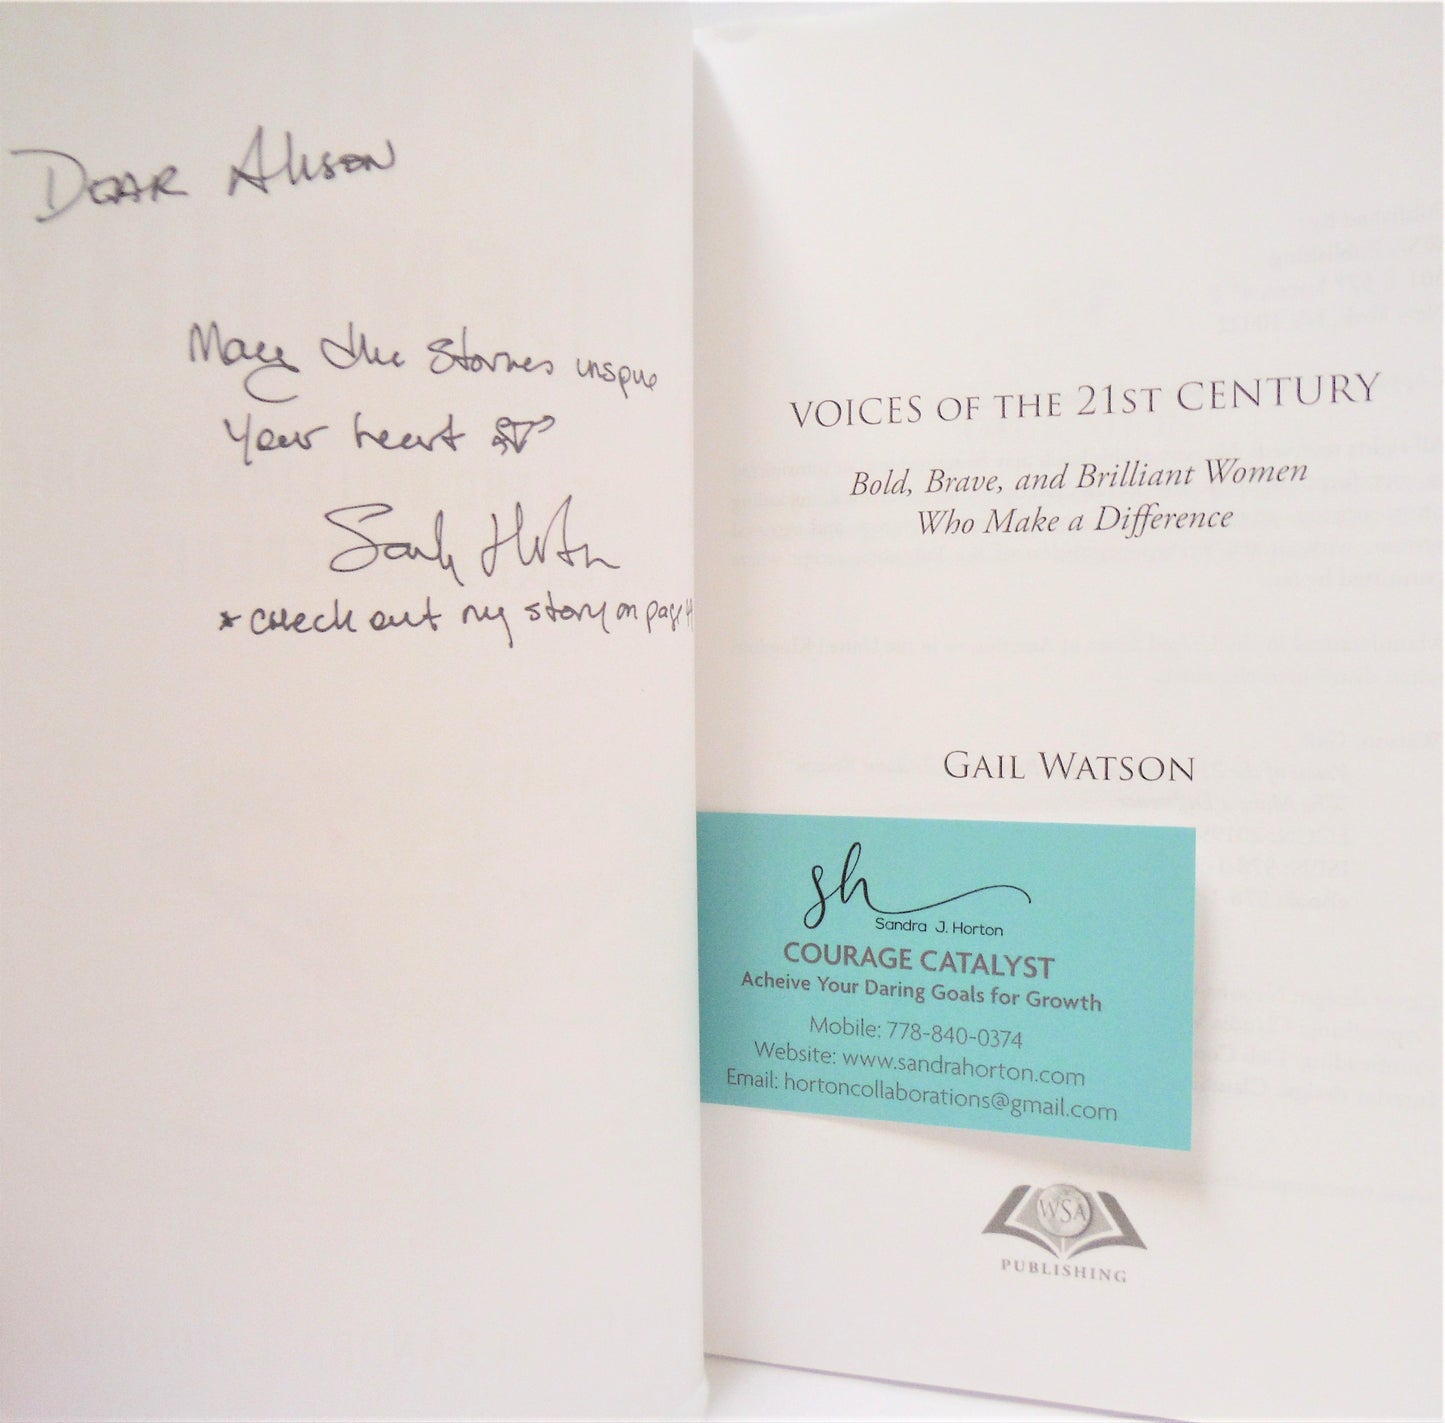 Dear Alison
May the stories inspire
Your heart
Sandy Horton
*check out my story on page
VOICES OF THE 21ST CENTURY
Bold, Brave, and Brilliant Women
Who Make a Difference
GAIL WATSON
sh
Sandra J. Horton
COURAGE CATALYST
Acheive Your Daring Goals for Growth
Mobile: 778-840-0374
Website: www.sandrahorton.com
Email: hortoncollaborations@gmail.com
WSA
PUBLISHING